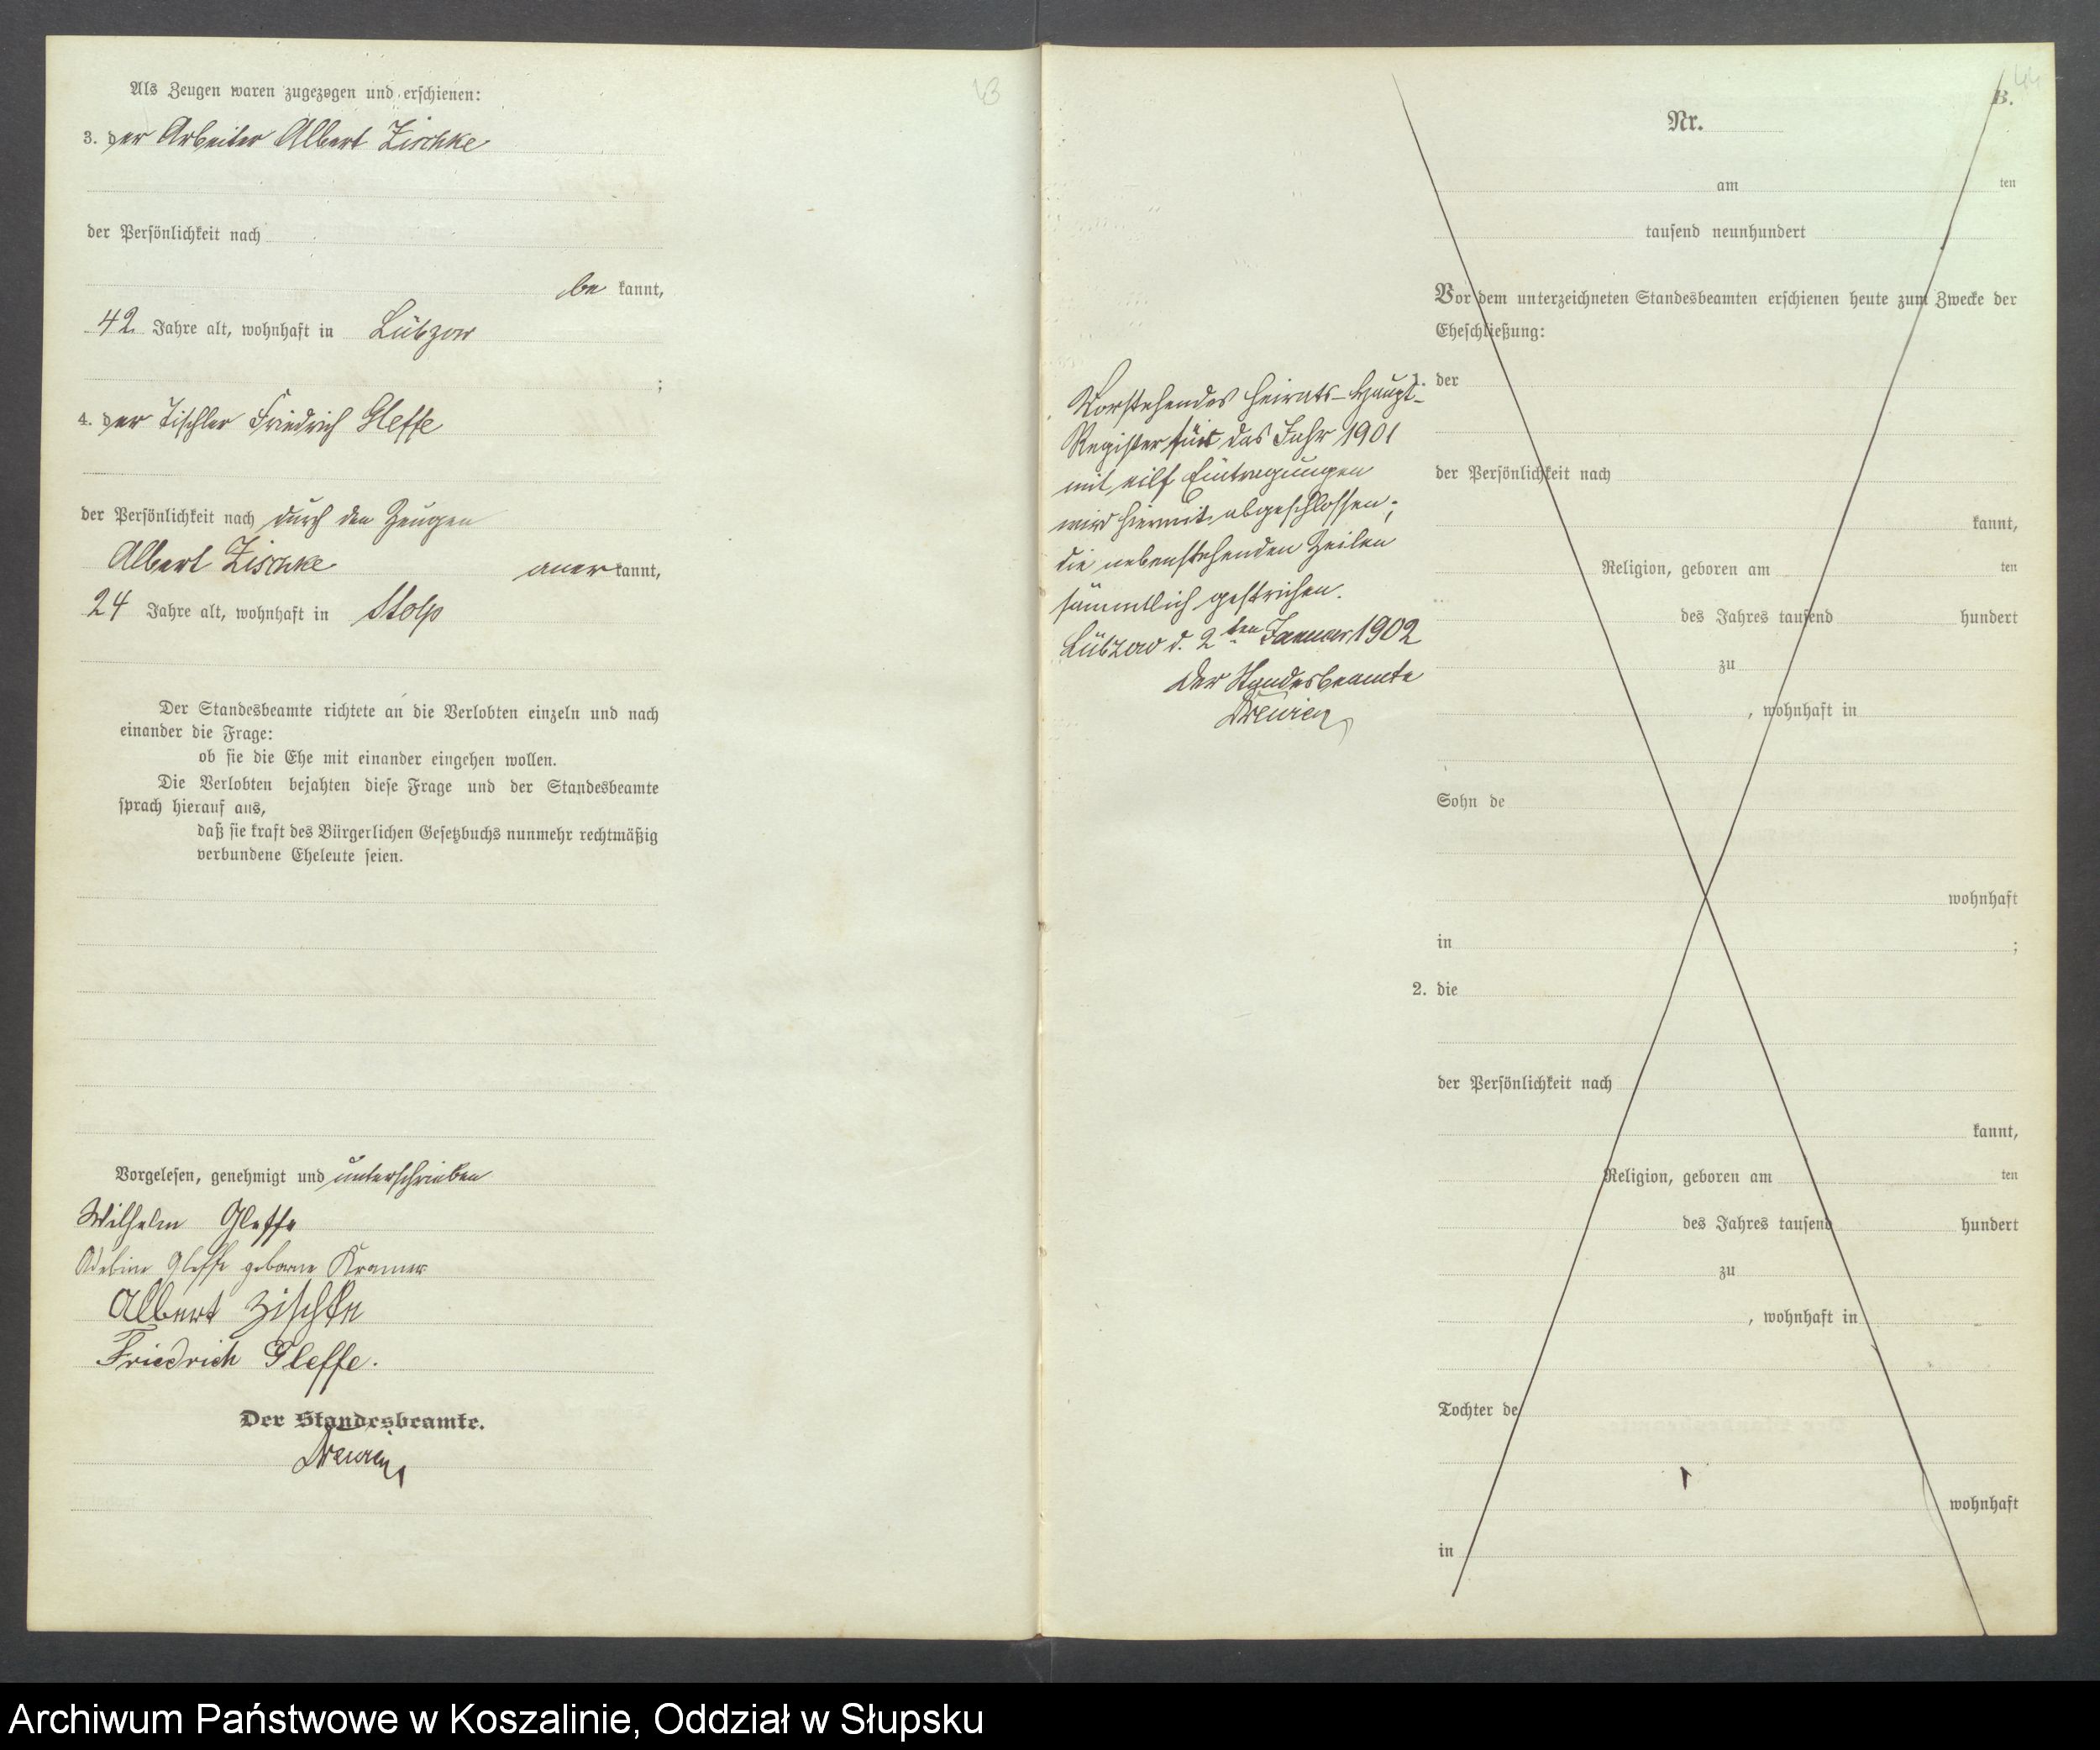 43
Als Zeugen waren zugezogen und erschienen:
3. der Arbeiter Albert Zischke
der Persönlichkeit nach
be kannt,
42 Jahre alt, wohnhaft in Lübzow
;
4. der Tischler Friedrich Gleffe
der Persönlichkeit nach durch den Zeugen
Albert Zischke aner kannt,
24 Jahre alt, wohnhaft in Stolp
Der Standesbeamte richtete an die Verlobten einzeln und nach
einander die Frage:
ob sie die Ehe mit einander eingehen wollen.
Die Verlobten bejahten diese Frage und der Standesbeamte
sprach hierauf aus,
daß sie kraft des Bürgerlichen Gesetzbuchs nunmehr rechtmäßig
verbundene Eheleute seien.
Vorgelesen, genehmigt und unterschrieben
Wilhelm Gleffe
Gleffe geborne Kramer
Albert Zischke
Friedrich Gleffe.
Der Standesbeamte.
44
B.
Nr.
am ten
tausend neunhundert
Vor dem unterzeichneten Standesbeamten erschienen heute zum Zwecke der
Eheschließung:
1. der
der Persönlichkeit nach
kannt,
Religion, geboren am ten
des Jahres tausend hundert
zu
, wohnhaft in
Sohn de
wohnhaft
in ;
2. die
der Persönlichkeit nach
kannt,
Religion, geboren am ten
des Jahres tausend hundert
zu
, wohnhaft in
Tochter de
wohnhaft
in
Vorstehendes Heirats-Haupt-
Register für das Jahr 1901
mit eilf Eintragungen
wird hiermit abgeschlossen;
die nebenstehenden Zeilen
sämmtlich gestrichen.
Lübzow d. 2ten Januar 1902
Der Standesbeamte
Archiwum Państwowe w Koszalinie, Oddział w Słupsku